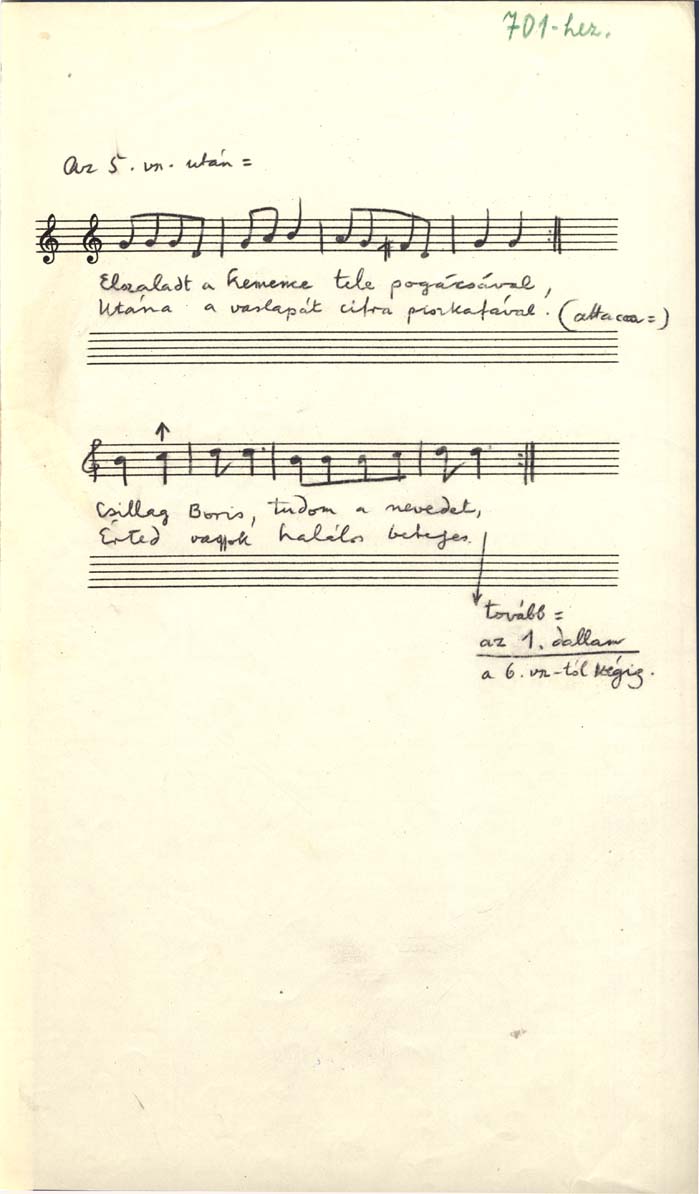 701-hez.
Az 5. vsz. után =
Elszaladt a kemence tele pogácsával,
Utána a vaslapát cifra piszkafával. (attacca =)
Csillag Boris, tudom a nevedet,
Érted vagyok halálos beteges.
tovább =
az 1. dallam
a 6. vsz-tól végig.